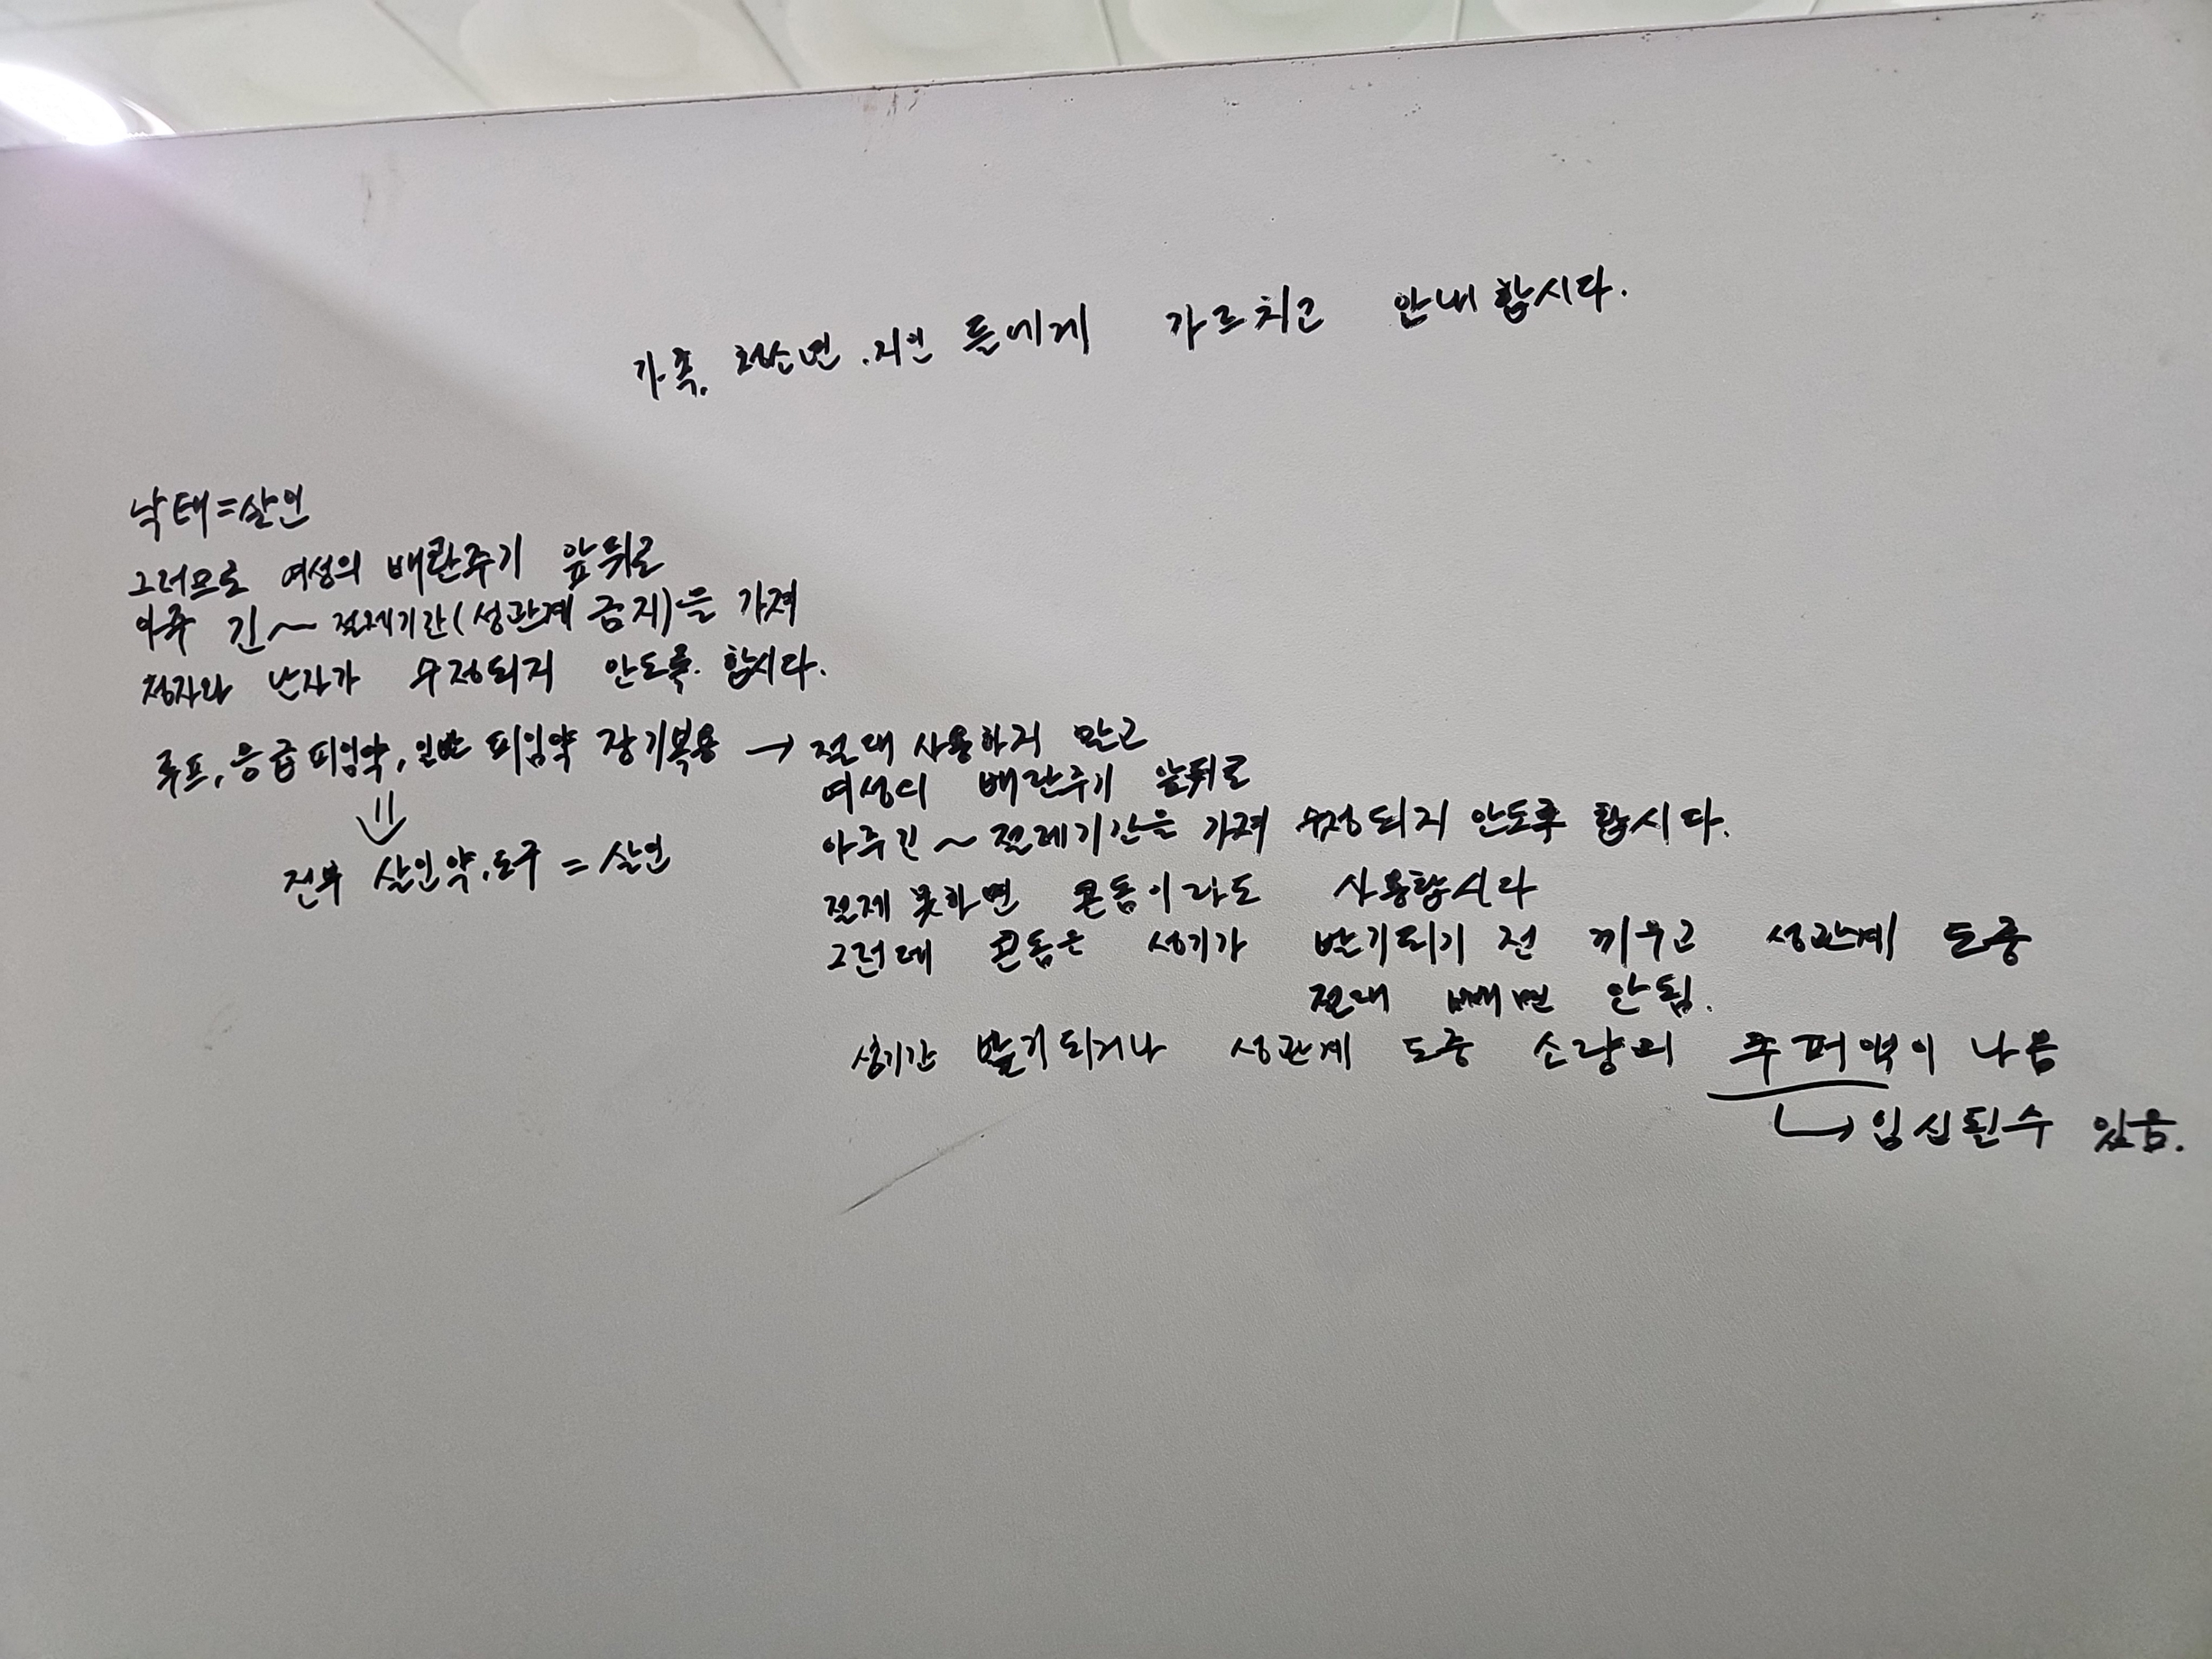 가족, 처음 본 .지인 들에게 가르치고 안내 합시다.
낙태=살인
그러므로 여성의 배란주기 앞뒤로
아주 긴~ 절제기간(성관계 금지)을 가져
정자와 난자가 수정되지 안도록. 합시다.
루프, 응급피임약, 일반 피임약 장기복용 → 절대 사용하지 말고
여성의 배란주기 앞뒤로
아주긴~ 절제기간을 가져 수정되지 안도록 합시다.
⇓
전부 살인약, 도구 = 살인
절제 못하면 콘돔이라도 사용합시다
그런데 콘돔은 성기가 발기되기 전 끼우고 성관계 도중
절대 빼면 안됨.
성기간 발기되거나 성관계 도중 소량의 쿠퍼액이 나옴
↳ 임신될수 있음.